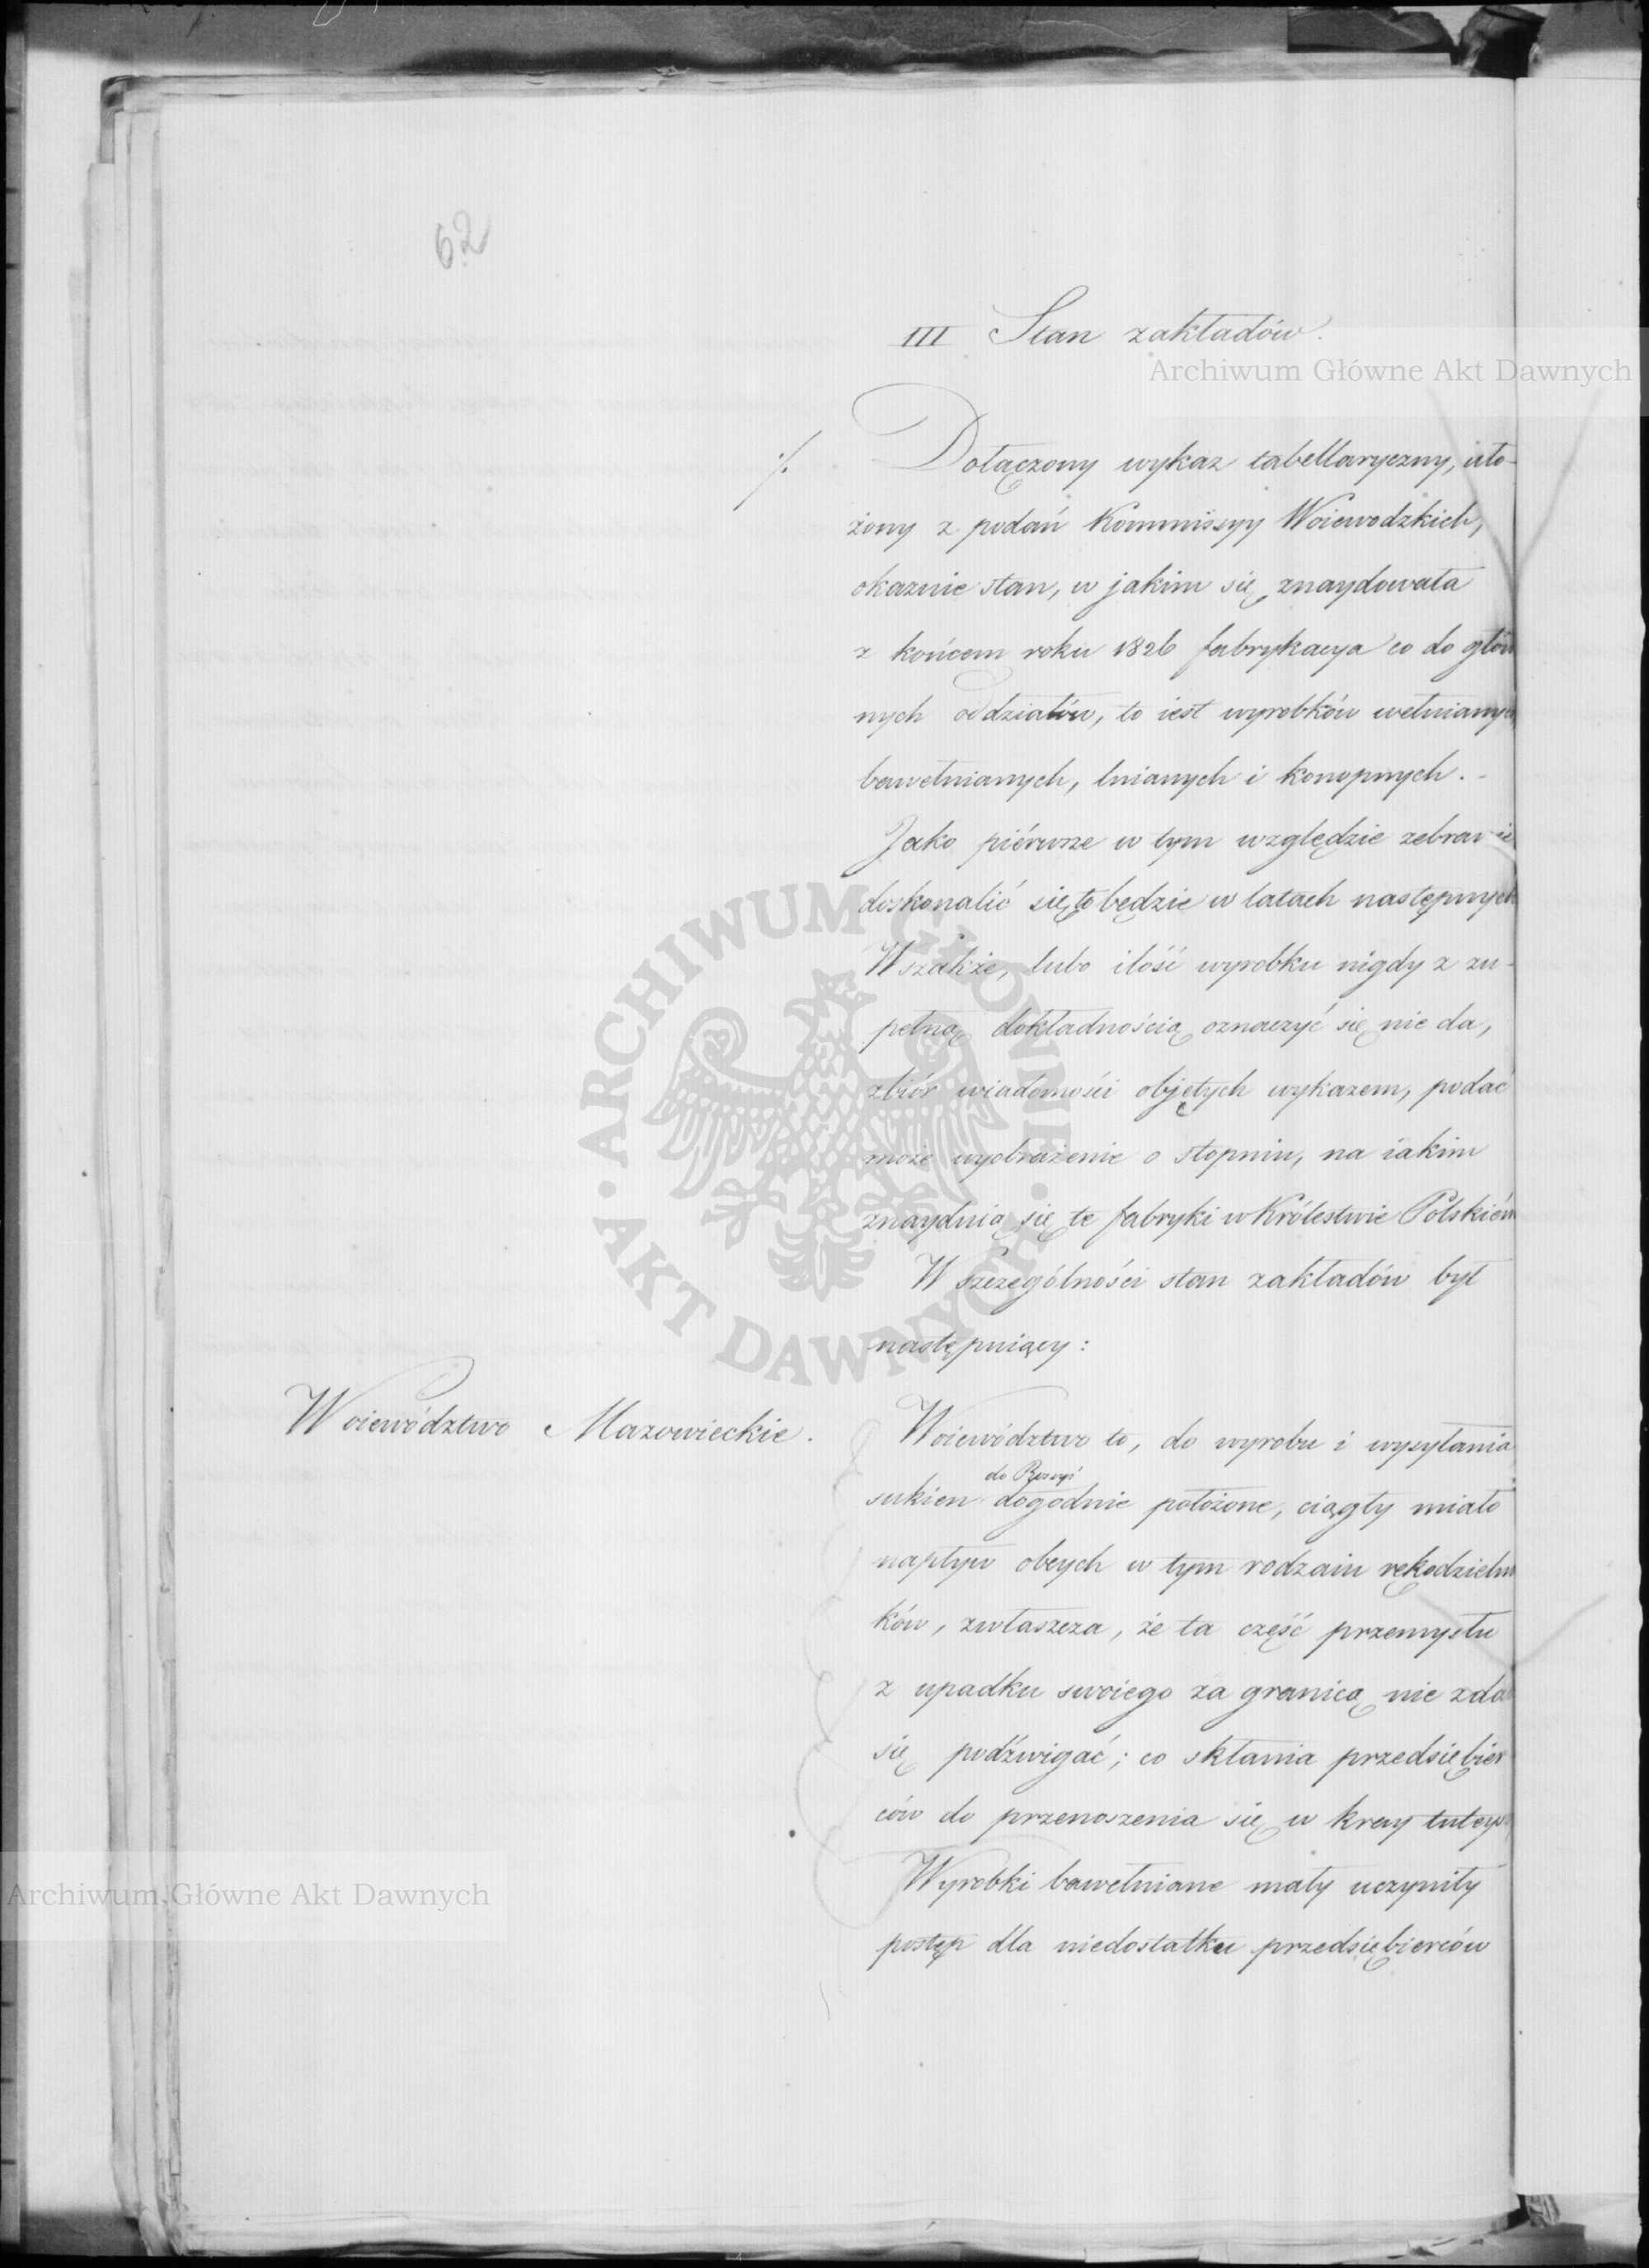 62
III Stan zakładów.
Archiwum Główne Akt Dawnych
·/. Dołączony wykaz tabellaryczny, uło-
żony z podań Kommissyy Woiewodzkich,
okazuie stan, w jakim się znaydowała
z końcem roku 1826 fabrykacya co do głów
nych oddziałów, to iest wyrobków wełnianych
bawełnianych, lnianych i konopnych. -
Jako piérwsze w tym względzie zebranie
doskonalić się to będzie w latach następnych
Wszakże, lubo ilość wyrobku nigdy z zu-
pełną dokładnością oznaczyć się nie da,
zbiór wiadomości objętych wykazem, podać
może wyobrażenie o stopniu, na iakim
znayduią się te fabryki w Królestwie Polskiém
W szczególności stan zakładów był
następuiący:
Woiewództwo Mazowieckie.
Woiewództwo to, do wyrobu i wysyłania
do Rossyi
sukien dogodnie położone, ciągły miało
napływ obcych w tym rodzaiu rękodzielni
ków, zwłaszcza, że ta część przemysłu
z upadku swoiego za granicą nie zda
się podźwigać; co skłania przedsiębier
ców do przenoszenia się w kray tuteys
Wyrobki bawełniane mały uczyniły
postęp dla niedostatku przedsiębierców
ARCHIWUM GŁÓWNE AKT DAWNYCH
Archiwum Główne Akt Dawnych